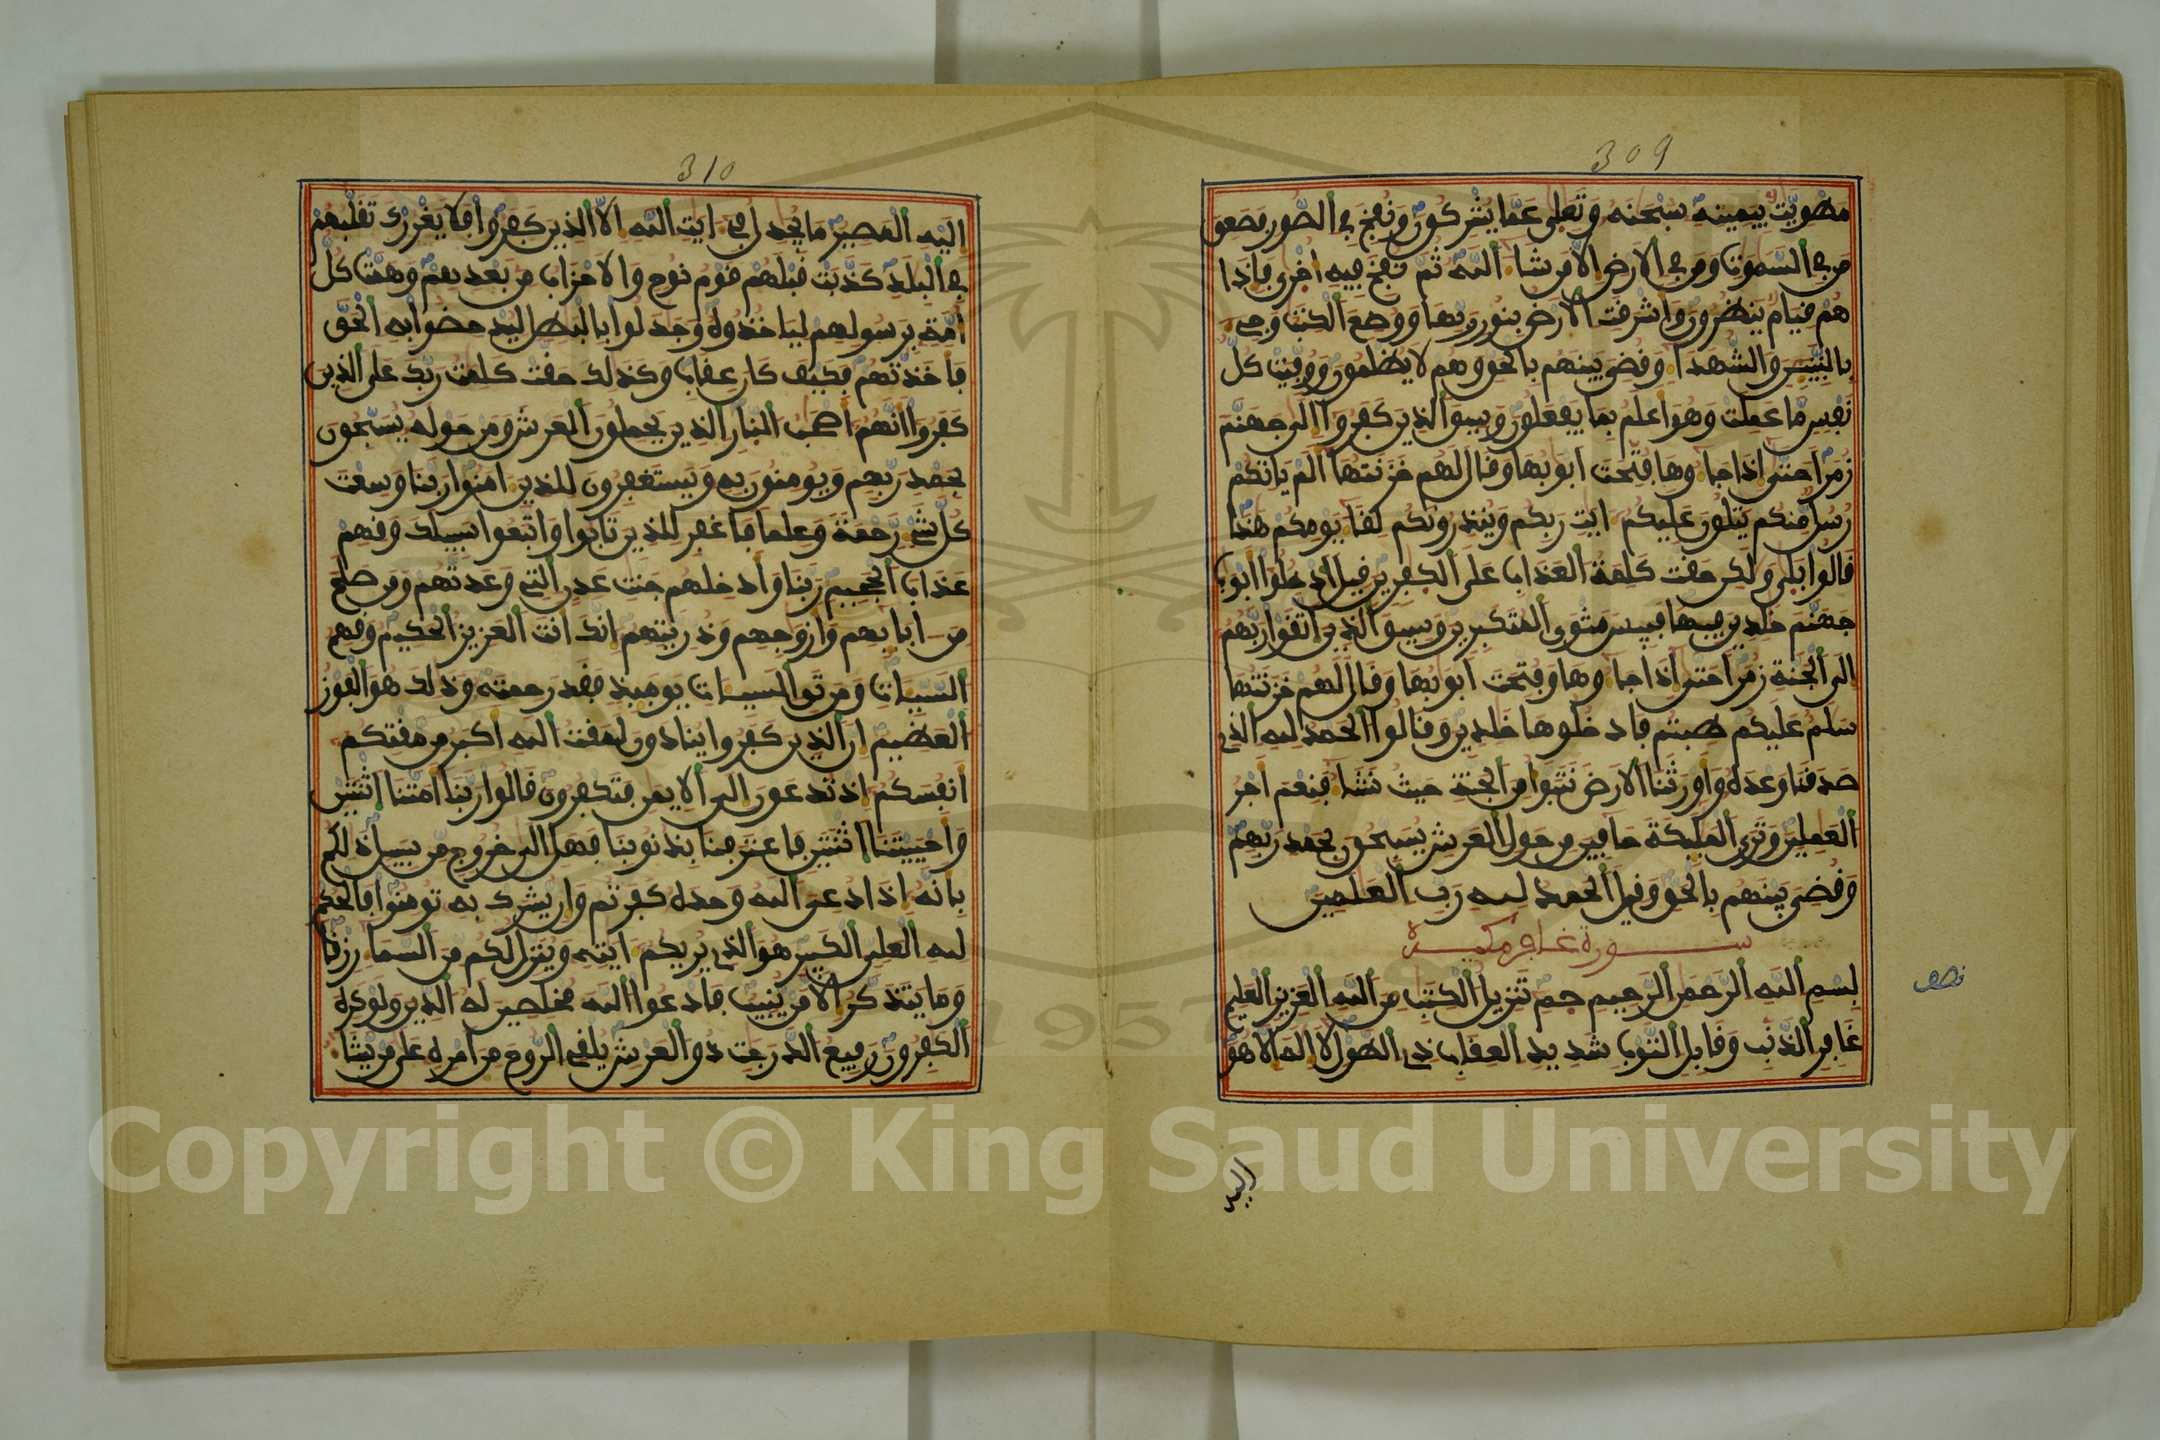 309
مطويت بيمينه سبحنه وتعلى عما يشركون ونفخ في الصور فصعق
من في السموت ومن في الارض الا من شا الله ثم نفخ فيه اخرى فاذا
هم قيام ينظرون واشرقت الارض بنور ربها ووضع الكتب وجاي
بالنبيين والشهدا وقضى بينهم بالحق وهم لا يظلمون ووفيت كل
نفس ما عملت وهو اعلم بما يفعلون وسيق الذين كفروا الى جهنم
زمرا حتى اذا جاوها فتحت ابوبها وقال لهم خزنتها الم ياتكم
رسل منكم يتلون عليكم ايت ربكم وينذرونكم لقا يومكم هذا
قالوا بلى ولكن حقت كلمة العذاب على الكفرين قيل ادخلوا ابوب
جهنم خلدين فيها فبيس مثوى المتكبرين وسيق الذين اتقوا ربهم
الى الجنة زمرا حتى اذا جاوها وفتحت ابوبها وقال لهم خزنتها
سلم عليكم طبتم فادخلوها خلدين وقالوا الحمد لله الذي
صدقنا وعده واورثنا الارض نتبوا من الجنة حيث نشا فنعم اجر
العملين وترى المليكة حافين من حول العرش يسبحون بحمد ربهم
وقضى بينهم بالحق وقيل الحمد لله رب العلمين
سورة غافر مكية
بسم الله الرحمن الرحيم حم تنزيل الكتب من الله العزيز العليم
غافر الذنب وقابل التوب شديد العقاب ذي الطول لا اله الا هو
نصف
اليه
310
اليه المصير ما يجدل في ايت الله الا الذين كفروا فلا يغررك تقلبهم
في البلد كذبت قبلهم قوم نوح والاحزاب من بعدهم وهمت كل
امة برسولهم لياخذوه وجدلوا بالبطل ليدحضوا به الحق
فاخذتهم فكيف كان عقاب وكذلك حقت كلمت ربك على الذين
كفروا انهم اصحب النار الذين يحملون العرش ومن حوله يسبحون
بحمد ربهم ويومنون به ويستغفرون للذين امنوا ربنا وسعت
كل شي رحمة وعلما فاغفر للذين تابوا واتبعوا سبيلك وقهم
عذاب الجحيم ربنا وادخلهم جنت عدن التي وعدتهم ومن صلح
من ابايهم وازوجهم وذريتهم انك انت العزيز الحكيم وقهم
السيات ومن تق السيات يوميذ فقد رحمته وذلك هو الفوز
العظيم ان الذين كفروا ينادون لمقت الله اكبر من مقتكم
انفسكم اذ تدعون الى الايمن فتكفرون قالوا ربنا امتنا اثنتين
واحييتنا اثنتين فاعترفنا بذنوبنا فهل الى خروج من سبيل ذلكم
بانه اذا دعي الله وحده كفرتم وان يشرك به تومنوا فالحكم
لله العلي الكبير هو الذي يريكم ايته وينزل لكم من السما رزقا
وما يتذكر الا من ينيب فادعوا الله مخلصين له الدين ولو كره
الكفرون رفيع الدرجت ذو العرش يلقي الروح من امره على من يشا
Copyright © King Saud University
1957